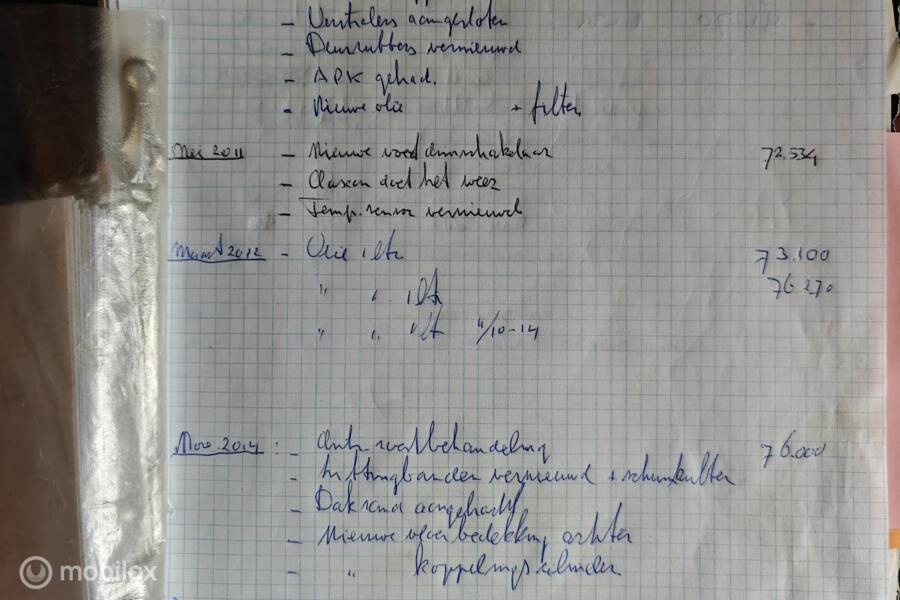 - Ventralers aangesloten
- Deurrubbers vernieuwd
- APK gehad.
- Nieuwe olie + filter
Mei 2011 - Nieuwe 72.534
- Claxon doet het weer
- Temp. sensor vernieuwd
Maart 2012 - Olie 1 ltr 73.100
" " 1 ltr 76.270
" " 1 ltr 4/10-14
Nov. 2014 : - Anti-roestbehandeling 76.000
- vernieuwd +
- Dakrand
- Nieuwe vloerbedekking achter
- " koppelingscilinder
mobilox